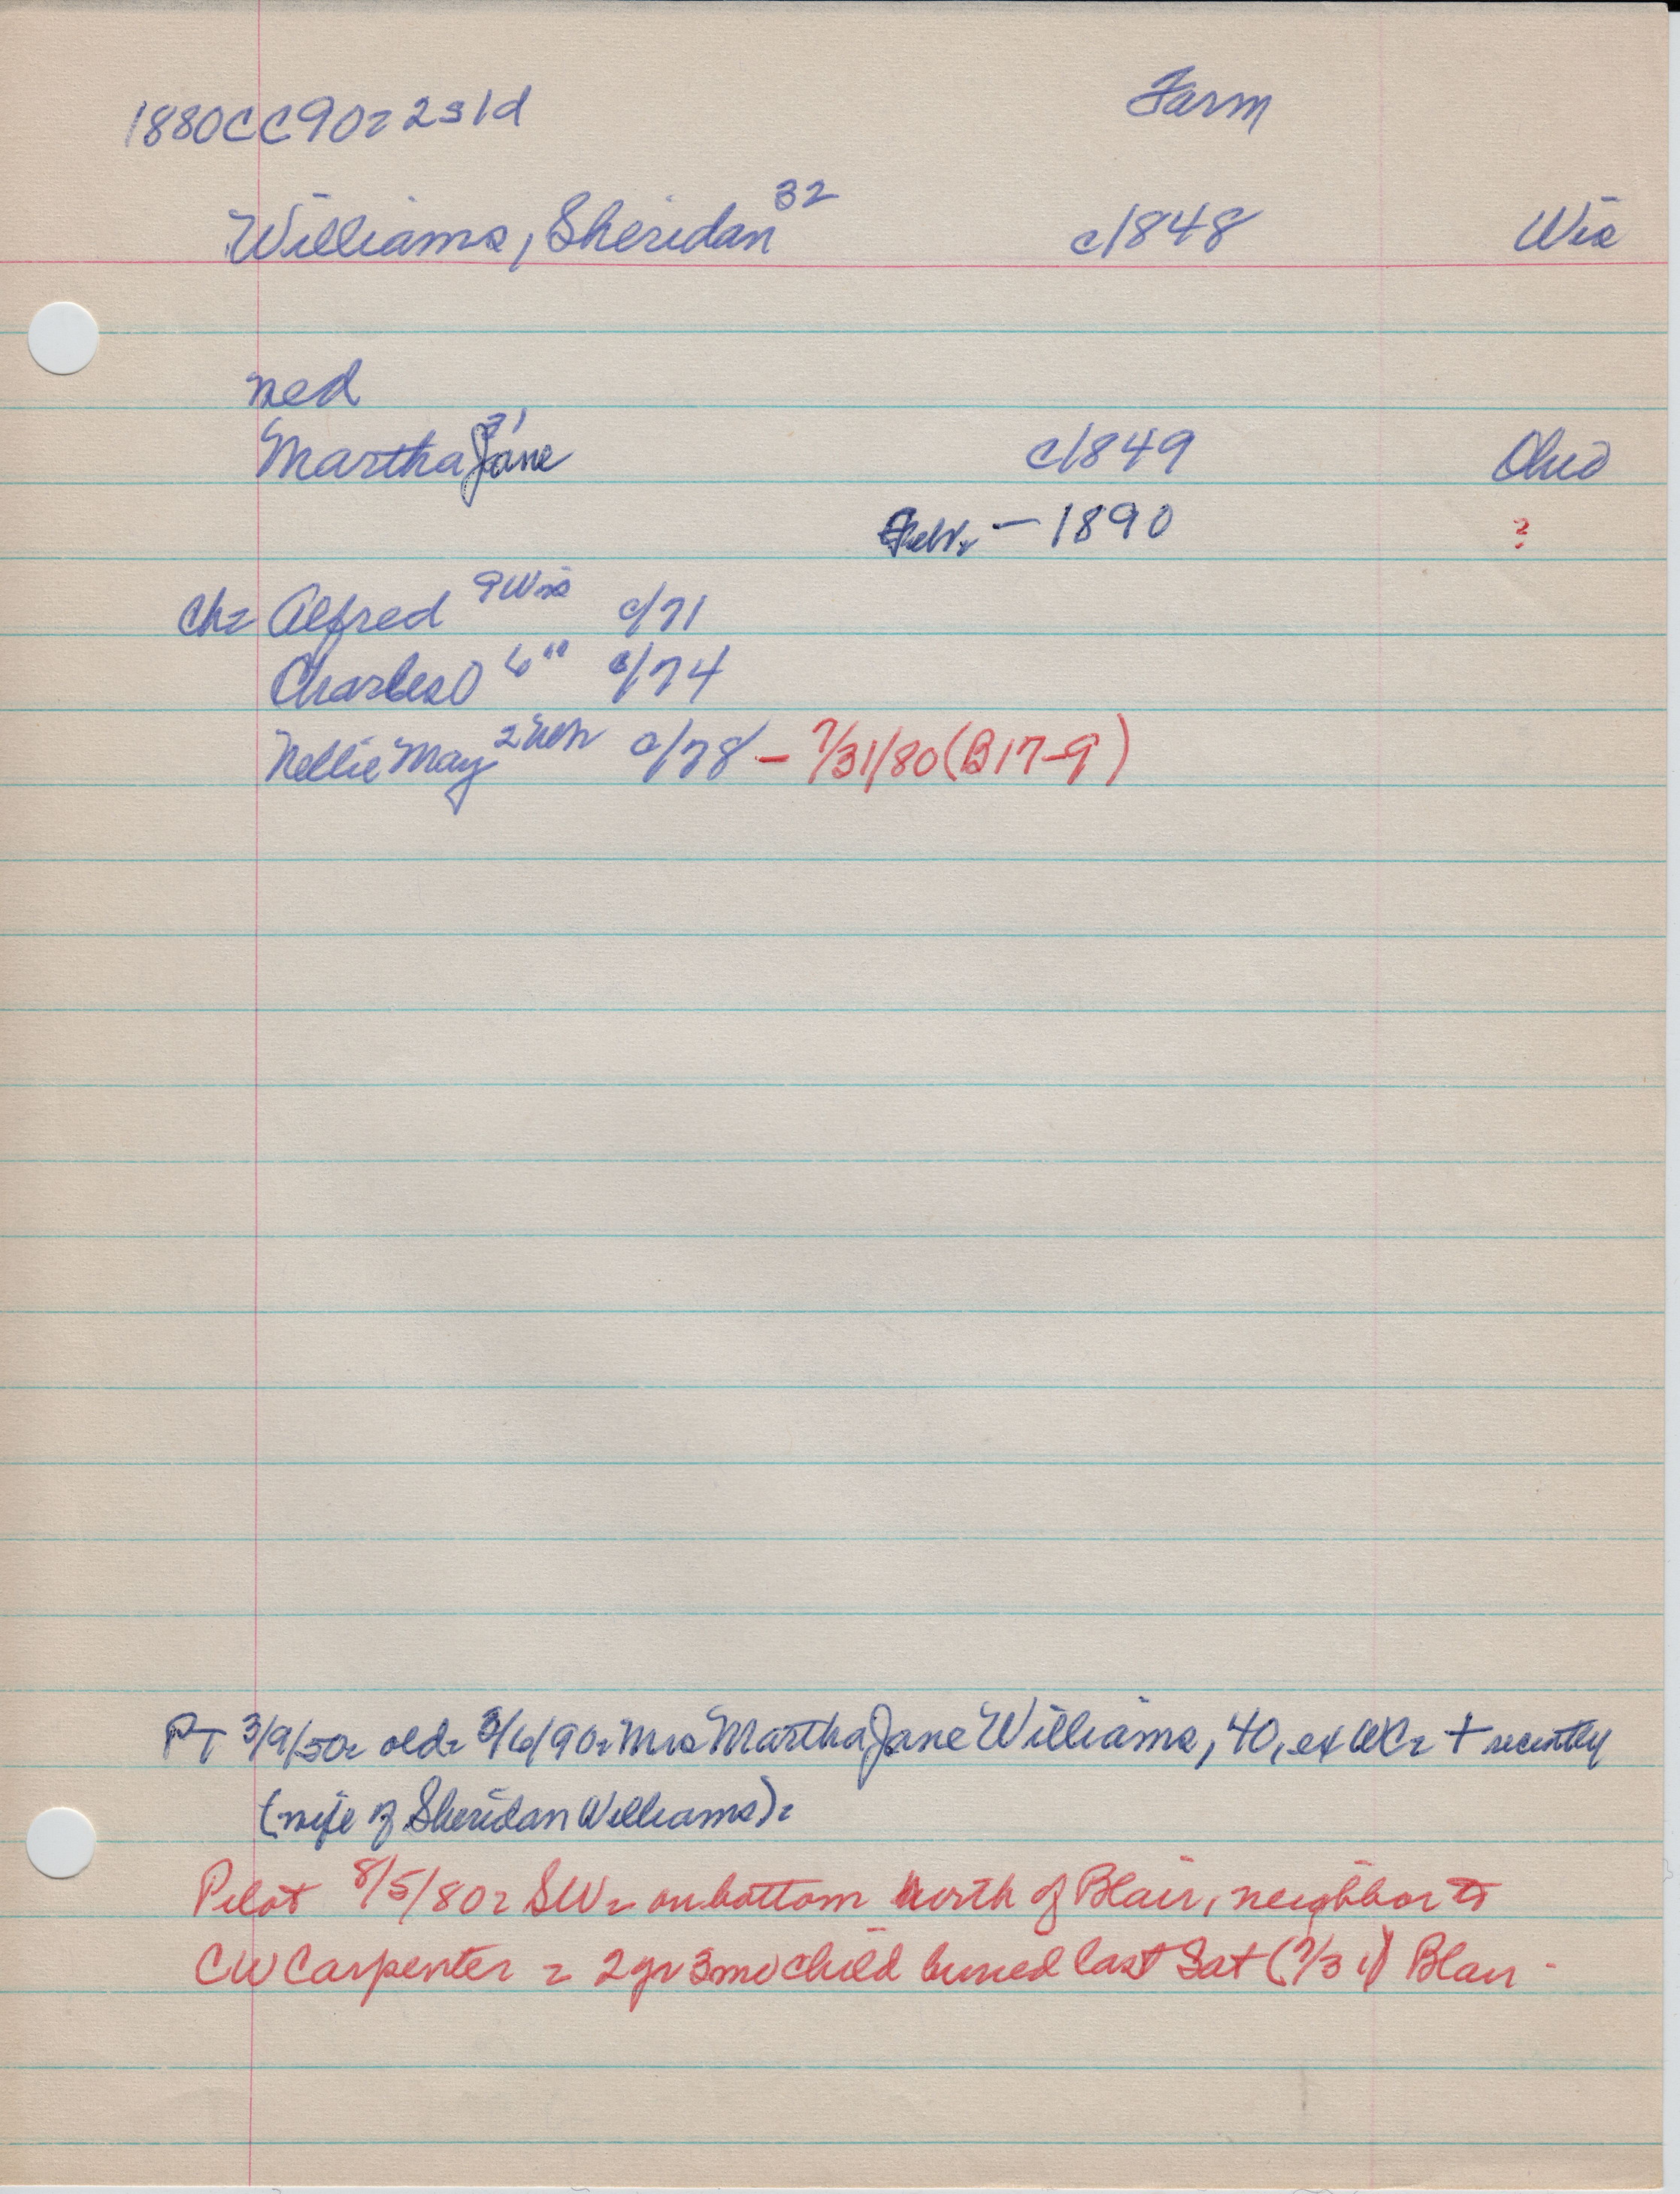 1880CC90= 2s1d Farm
Williams, Sheridan 32 c/1848 Wis
ned
Martha Jane 31 c/1849 Ohio
Febr. - 1890 ?
Ch= Alfred 9 Wis c/71
Charles O 6 " c/74
Nellie May 2 Neb c/78 - 7/31/80 (B17-9)
PT 3/9/50= old= 3/6/90= Mrs Martha Jane Williams, 40, ex WC= + recently
(wife of Sheridan Williams)=
Pilot 8/5/80= SW= on bottom north of Blair, neighbor to
CW Carpenter = 2yr 3mo child buried last Sat (7/31) Blair -